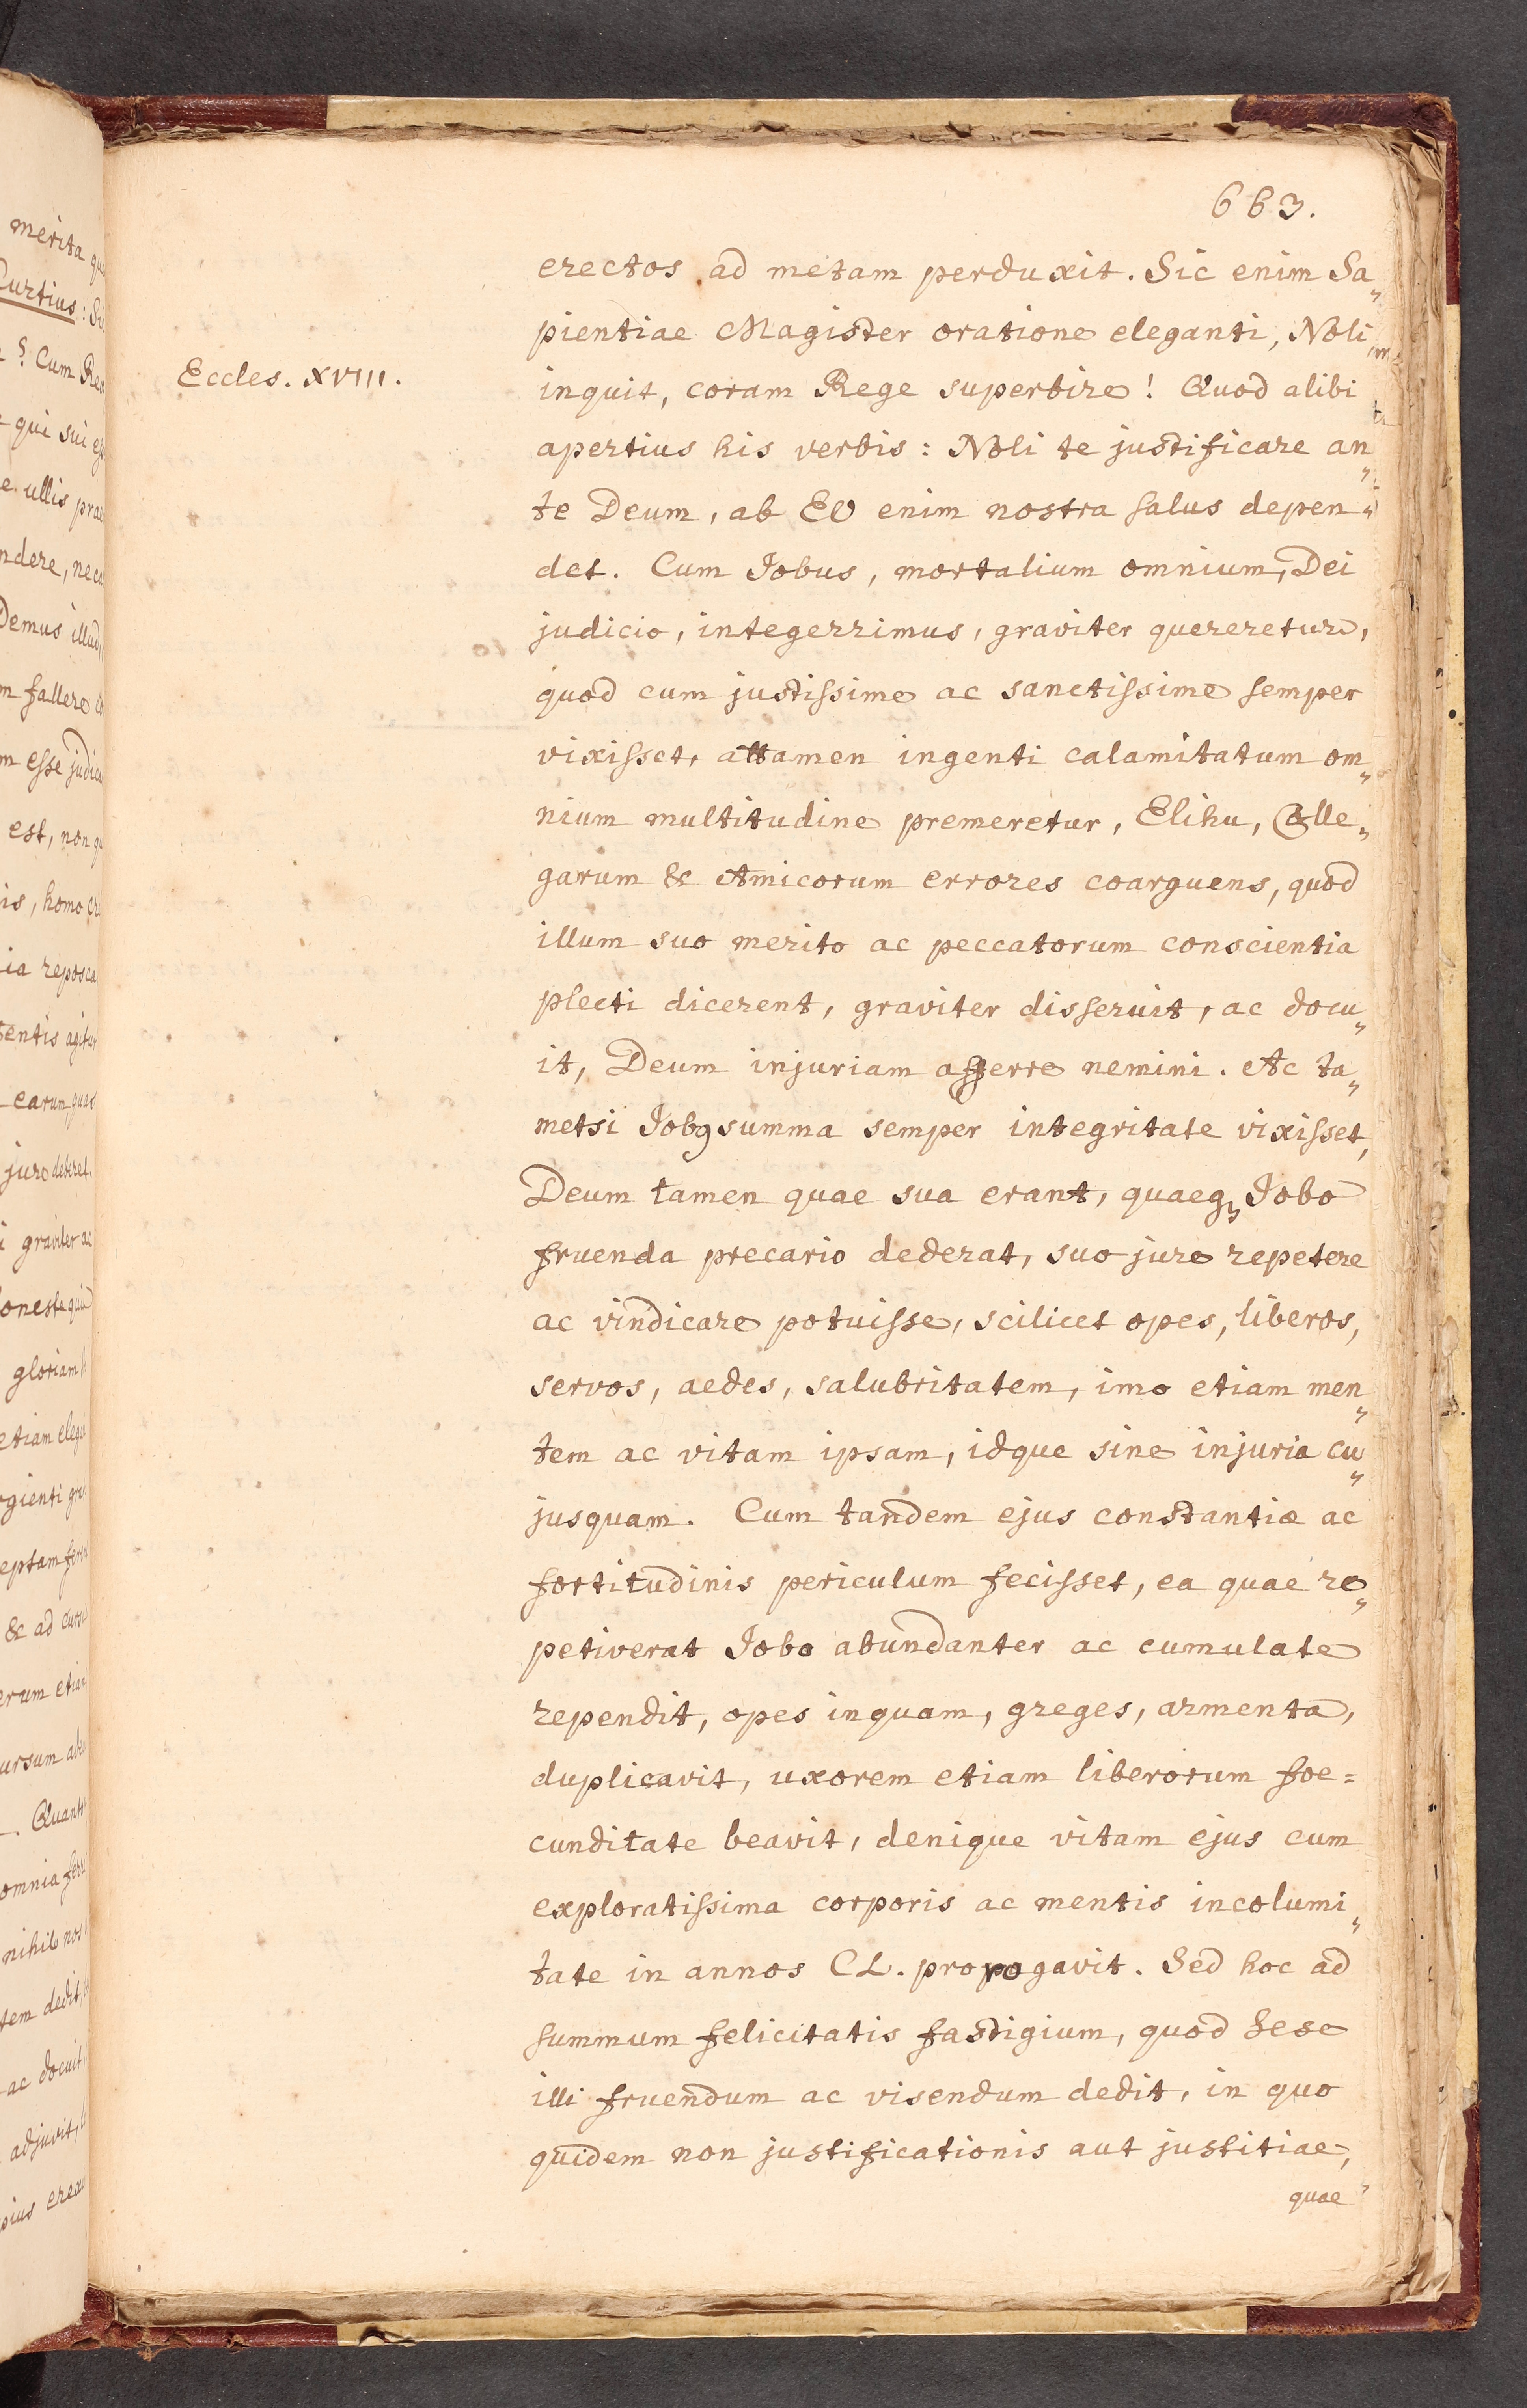 663.
erectos ad metam perduxit. Sic enim Sa„
pientiae Magister oratione eleganti, Noli
Eccles. XVIII.
inquit, coram Rege superbire! Quod alibi
apertius his verbis: Noli te justificare an„
te Deum, ab EO enim nostra salus depen„
det. Cum Jobus, mortalium omnium, Dei
judicio, integerrimus, graviter quereretur,
quod cum justissime ac sanctissime semper
vixisset, attamen ingenti calamitatum om„
nium multitudine premeretur, Elihu, Colle„
garum & Amicorum errores coarguens, quod
illum suo merito ac peccatorum conscientia
plecti dicerent, graviter disseruit, ac docu„
it, Deum injuriam afferre nemini. Ac ta„
metsi Jobꝰ summa semper integritate vixisset,
Deum tamen quae sua erant, quaeqꝫ Jobo
fruenda precario dederat, suo jure repetere
ac vindicare potuisse, scilicet opes, liberos,
servos, aedes, salubritatem, imo etiam men„
tem ac vitam ipsam, idque sine injuria cu„
jusquam. Cum tandem ejus constantiæ ac
fortitudinis periculum fecisset, ea quae re„
petiverat Jobo abundanter ac cumulate
rependit, opes inquam, greges, armenta,
duplicavit, uxorem etiam liberorum foe=
cunditate beavit, denique vitam ejus cum
exploratissima corporis ac mentis incolumi„
tate in annos CL. propogavit. Sed hoc ad
summum felicitatis fastigium, quod Sese
illi fruendum ac visendum dedit, in quo
quidem non justificationis aut justitiae,
quae
merita
Curtius:
? Cum
qui sui
ullis
Demus
fallere
esse
est, non
is, homo
entis
earum
gloriam
etiam
& ad
nihil nos
tem dedit,
ac docuit
adjuvit,